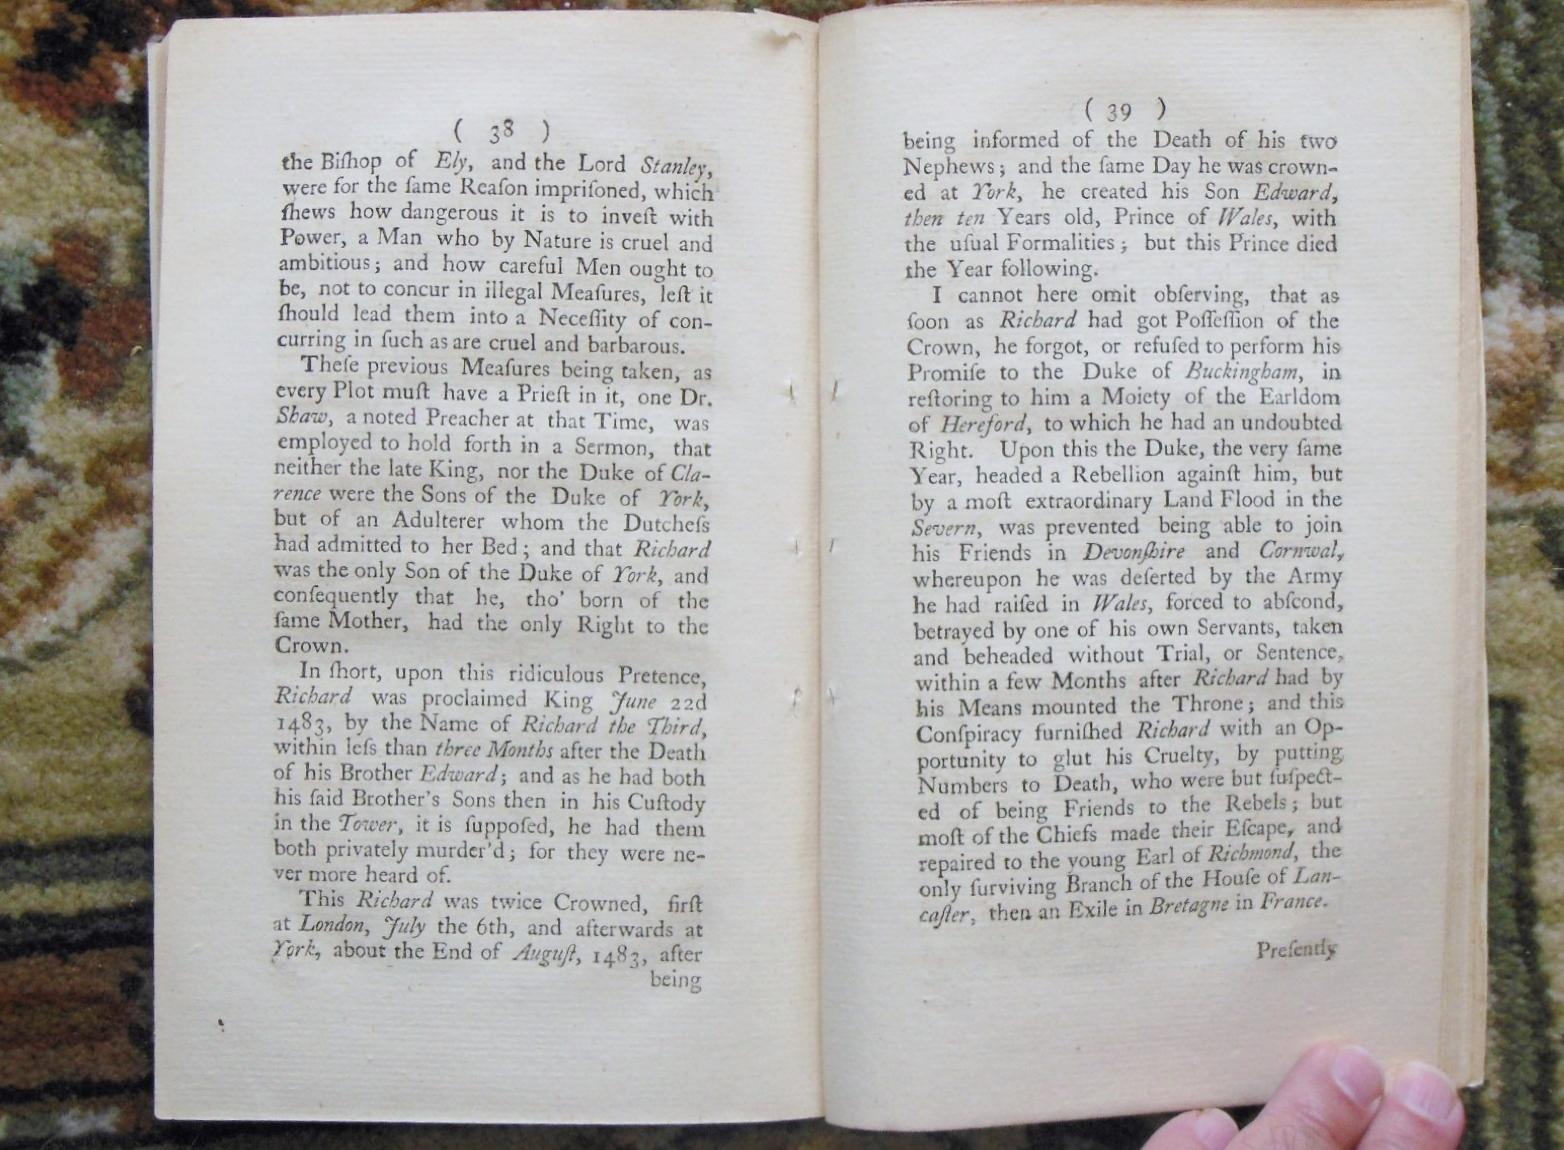 ( 38 )
the Biſhop of Ely, and the Lord Stanley,
were for the ſame Reaſon impriſoned, which
ſhews how dangerous it is to inveſt with
Power, a Man who by Nature is cruel and
ambitious; and how careful Men ought to
be, not to concur in illegal Meaſures, leſt it
ſhould lead them into a Neceſſity of con-
curring in ſuch as are cruel and barbarous.
Theſe previous Meaſures being taken, as
every Plot muſt have a Prieſt in it, one Dr.
Shaw, a noted Preacher at that Time, was
employed to hold forth in a Sermon, that
neither the late King, nor the Duke of Cla-
rence were the Sons of the Duke of York,
but of an Adulterer whom the Dutcheſs
had admitted to her Bed; and that Richard
was the only Son of the Duke of York, and
conſequently that he, tho' born of the
ſame Mother, had the only Right to the
Crown.
In ſhort, upon this ridiculous Pretence,
Richard was proclaimed King June 22d
1483, by the Name of Richard the Third,
within leſs than three Months after the Death
of his Brother Edward; and as he had both
his ſaid Brother's Sons then in his Cuſtody
in the Tower, it is ſuppoſed, he had them
both privately murder'd; for they were ne-
ver more heard of.
This Richard was twice Crowned, firſt
at London, July the 6th, and afterwards at
York, about the End of Auguſt, 1483, after
being
( 39 )
being informed of the Death of his two
Nephews; and the ſame Day he was crown-
ed at York, he created his Son Edward,
then ten Years old, Prince of Wales, with
the uſual Formalities; but this Prince died
the Year following.
I cannot here omit obſerving, that as
ſoon as Richard had got Poſſeſſion of the
Crown, he forgot, or refuſed to perform his
Promiſe to the Duke of Buckingham, in
reſtoring to him a Moiety of the Earldom
of Hereford, to which he had an undoubted
Right. Upon this the Duke, the very ſame
Year, headed a Rebellion againſt him, but
by a moſt extraordinary Land Flood in the
Severn, was prevented being able to join
his Friends in Devonſhire and Cornwal,
whereupon he was deſerted by the Army
he had raiſed in Wales, forced to abſcond,
betrayed by one of his own Servants, taken
and beheaded without Trial, or Sentence,
within a few Months after Richard had by
his Means mounted the Throne; and this
Conſpiracy furniſhed Richard with an Op-
portunity to glut his Cruelty, by putting
Numbers to Death, who were but ſuſpect-
ed of being Friends to the Rebels; but
moſt of the Chiefs made their Eſcape, and
repaired to the young Earl of Richmond, the
only ſurviving Branch of the Houſe of Lan-
caſter, then an Exile in Bretagne in France.
Preſently